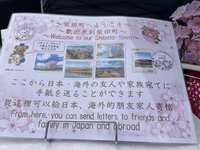 ～柴田町へようこそ～
～歡迎來到柴田町～
～Welcome to our Shibata Town～
ここから日本、海外の友人や家族宛てに
手紙を送ることができます
從這裡可以給日本、海外的朋友家人寄信
From here, you can send letters to friends and
family in Japan and abroad